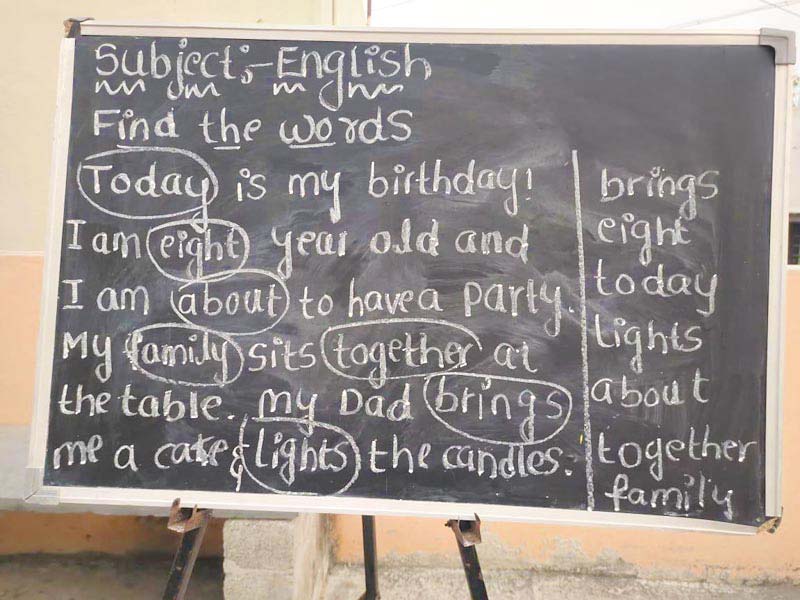 Subject:-English
Find the words
Today is my birthday!
I am eight year old and
I am about to have a party.
My family sits together at
the table. My Dad brings
me a cake & lights the candles.
brings
eight
today
lights
about
together
family